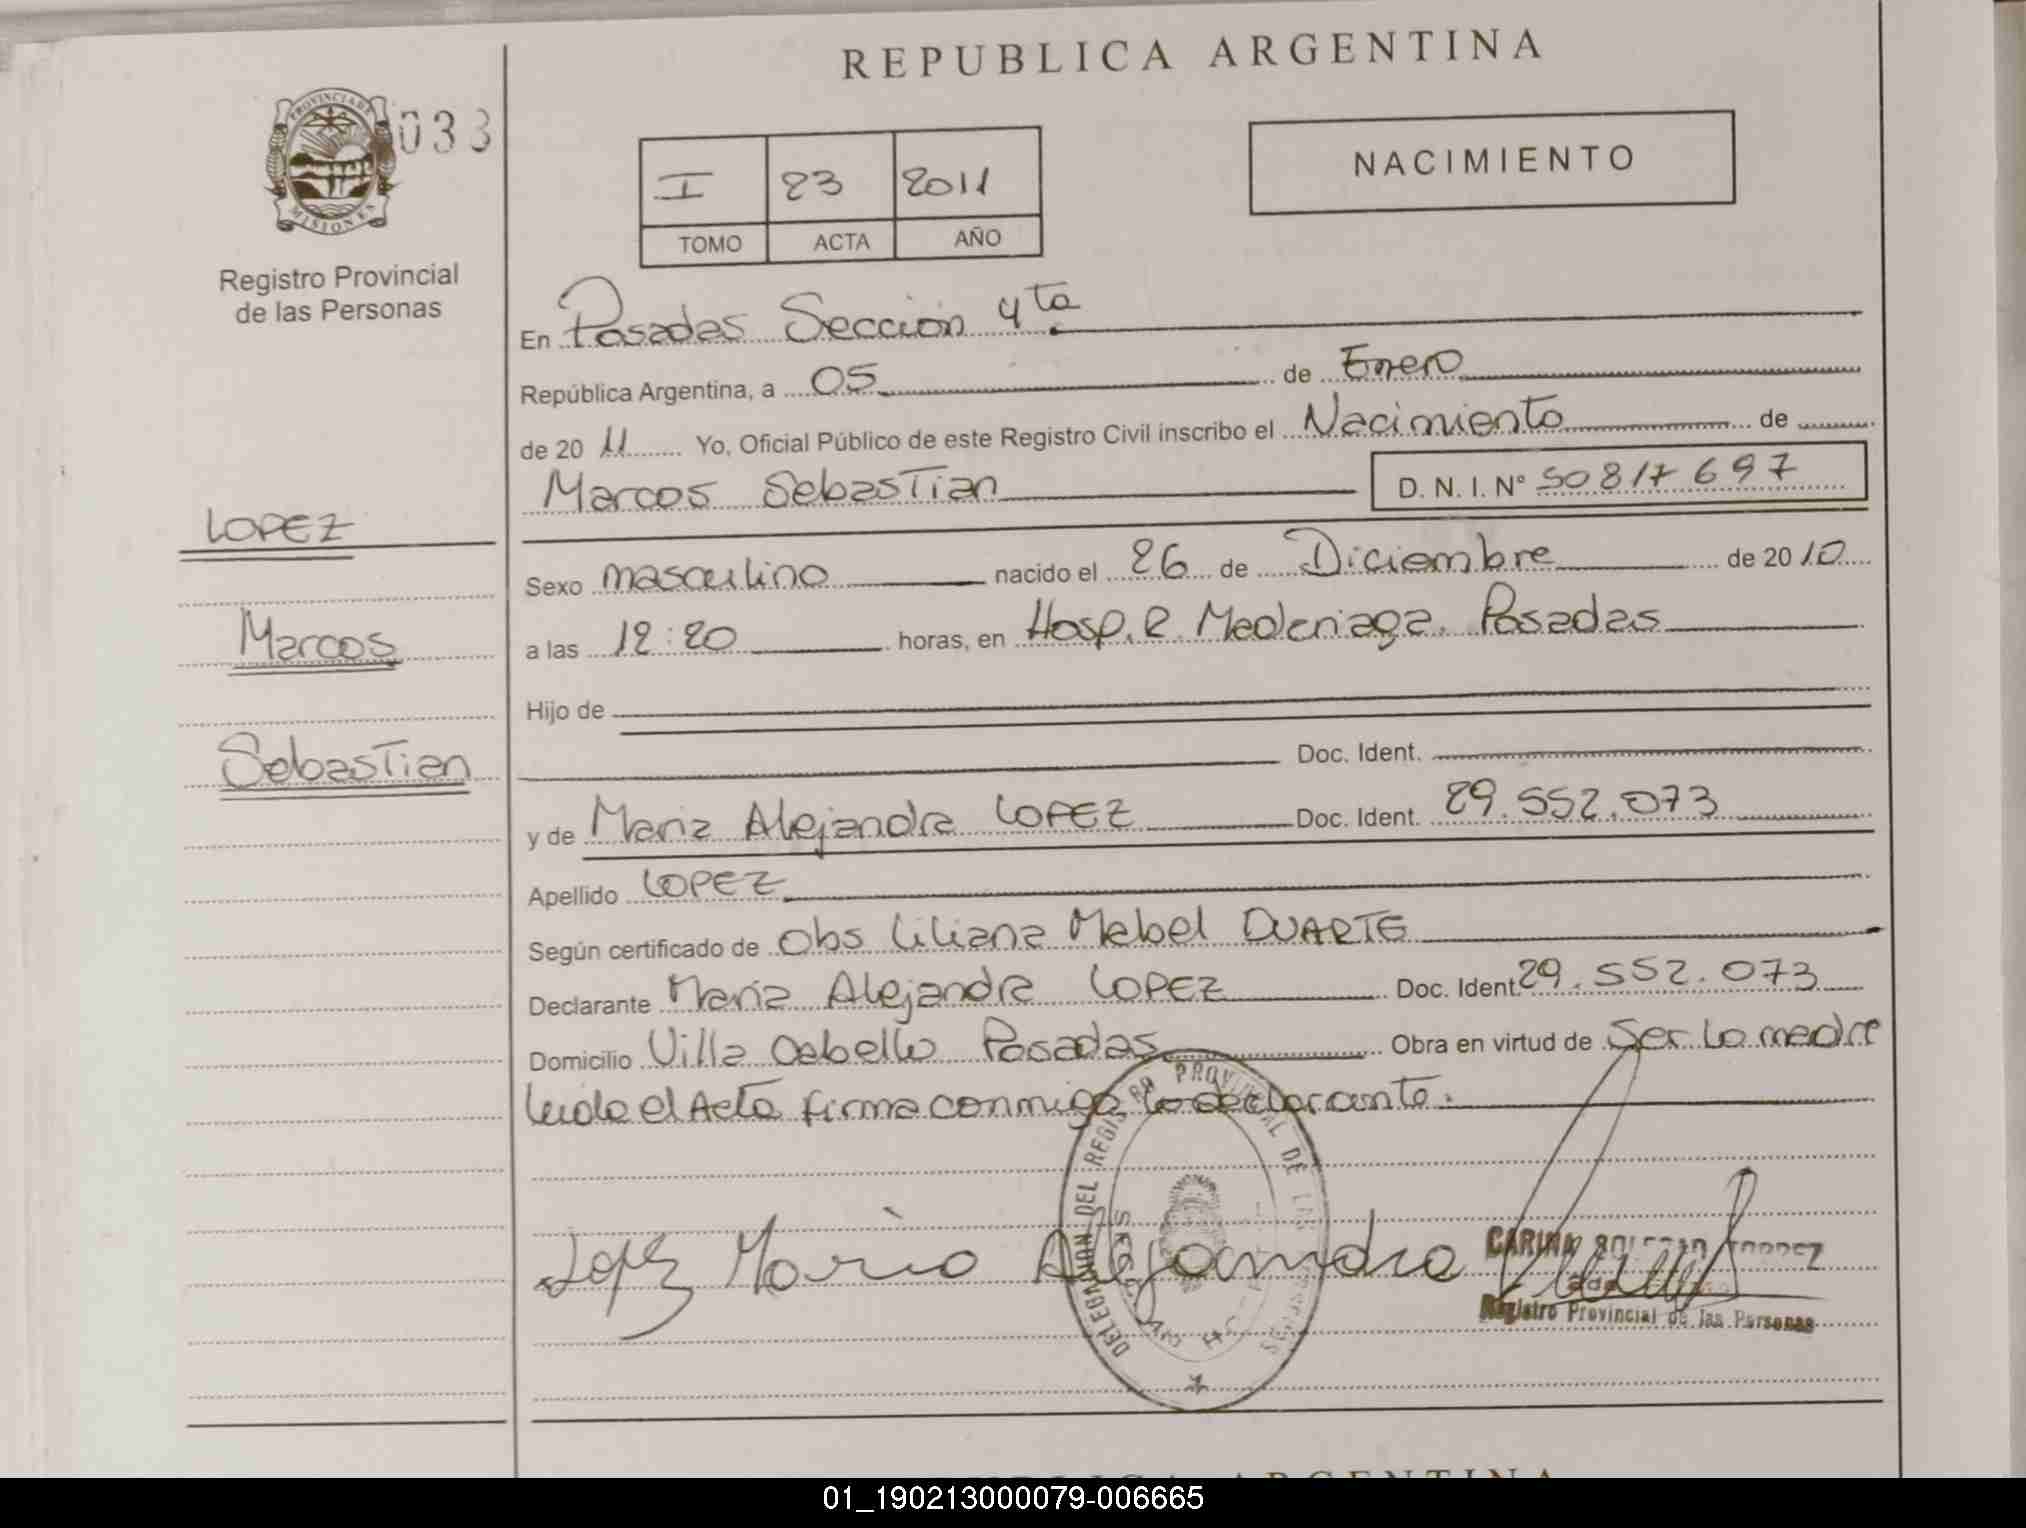 REPUBLICA ARGENTINA
PROVINCIA DE
MISIONES
033
Registro Provincial
de las Personas
I 23 2011
TOMO ACTA AÑO
NACIMIENTO
En Posadas Sección 4ta
República Argentina, a 05 de Enero
de 20 11 Yo, Oficial Público de este Registro Civil inscribo el Nacimiento de
Marcos Sebastian D. N. I. N° 50817697
LOPEZ
Marcos
Sebastian
Sexo masculino nacido el 26 de Diciembre de 2010
a las 12:20 horas, en Hosp. R. Madariaga. Posadas
Hijo de
Doc. Ident.
y de María Alejandra LOPEZ Doc. Ident. 29.552.073
Apellido LOPEZ
Según certificado de Obs Liliana Mabel DUARTE
Declarante María Alejandra LOPEZ Doc. Ident 29.552.073
Domicilio Villa Cabello Posadas Obra en virtud de Ser la madre
leida el Acta firma conmigo la declarante.
DELEGACION DEL REGISTRO PROVINCIAL DE
Lopez Maria Alejandra
CARINA
Registro Provincial de las Personas
ARGENTINA
01_190213000079-006665